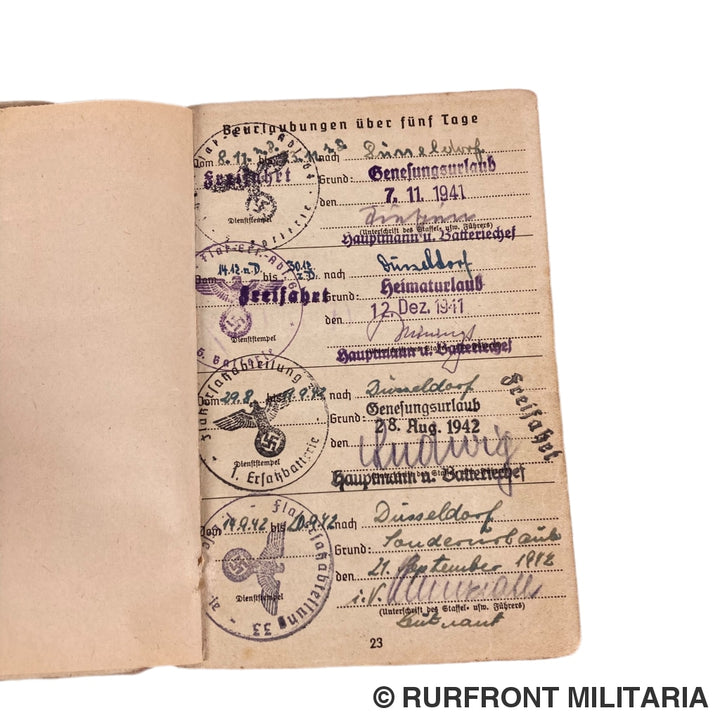 Beurlaubungen über fünf Tage
vom 8.11. bis nach Düsseldorf
Freifahrt Grund: Genesungsurlaub
den 7. 11. 1941
Dienststempel
(Unterschrift des Staffel- usw. Führers)
Hauptmann u. Batteriechef
vom 14.12. n.D. bis 30.12. n.D. nach Düsseldorf
Freifahrt Grund: Heimaturlaub
den 12. Dez. 1941
Dienststempel
Hauptmann u. Batteriechef
Flakersatzabteilung
vom 29.8. bis 9.42 nach Düsseldorf
Freifahrt
Grund: Genesungsurlaub
den 28. Aug. 1942
Ludwig
Dienststempel
Hauptmann u. Batteriechef
1. Ersatzbatterie
vom 14.9.42 bis 20.9.42 nach Düsseldorf
Grund: Sonderurlaub
den 21. September 1942
i.V.
Dienststempel
(Unterschrift des Staffel- usw. Führers)
Leutnant
Flakersatzabteilung 33
23
© RURFRONT MILITARIA